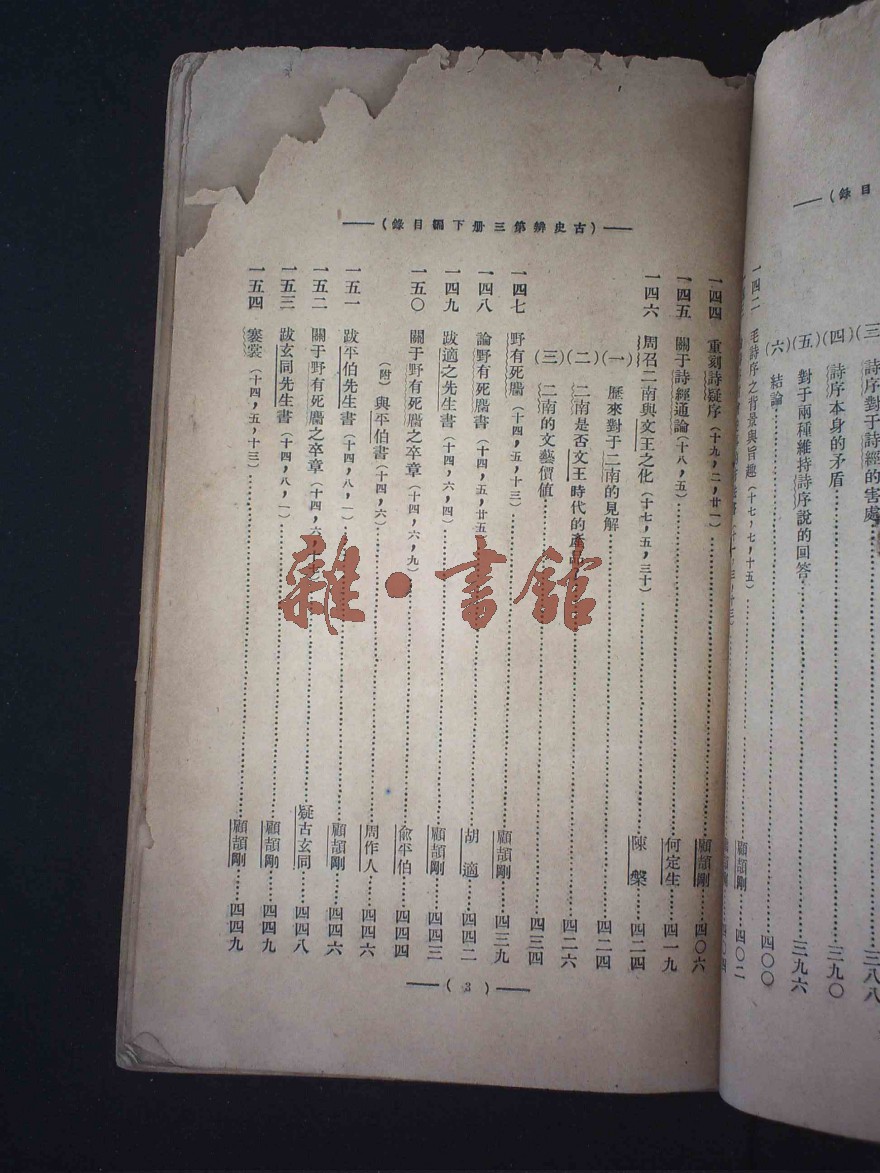 錄目
(三)詩序對于詩經的害處……三八八
(四)詩序本身的矛盾……三九〇
(五)對于兩種維持詩序說的回答……三九六
(六)結論……四〇〇
一四二 毛詩序之背景與旨趣(十七,七,十五)……顧頡剛……四〇二
(古史辨第三册下編目錄)
一四四 重刻詩疑序(十九,二,廿一)……顧頡剛……四〇六
一四五 關于詩經通論(十八,五)……何定生……四一九
一四六 周召二南與文王之化(十七,五,三十)……陳槃……四二四
(一)歷來對于二南的見解……四二四
(二)二南是否文王時代的產品……四二六
(三)二南的文藝價值……四三四
一四七 野有死麕(十四,五,十三)……顧頡剛……四三九
一四八 論野有死麕書(十四,五,廿五……胡適……四四二
一四九 跋適之先生書(十四,六,四)……顧頡剛……四四三
一五〇 關于野有死麕之卒章(十四,六,九)……俞平伯……四四四
(附)與平伯書(十四,六)……周作人……四四六
一五一 跋平伯先生書(十四,八,一)……顧頡剛……四四六
一五二 關于野有死麕之卒章(十四,六,……疑古玄同……四四八
一五三 跋玄同先生書(十四,八,一)……顧頡剛……四四九
一五四 褰裳(十四,五,十三)……顧頡剛……四四九
(3)
雜·書館